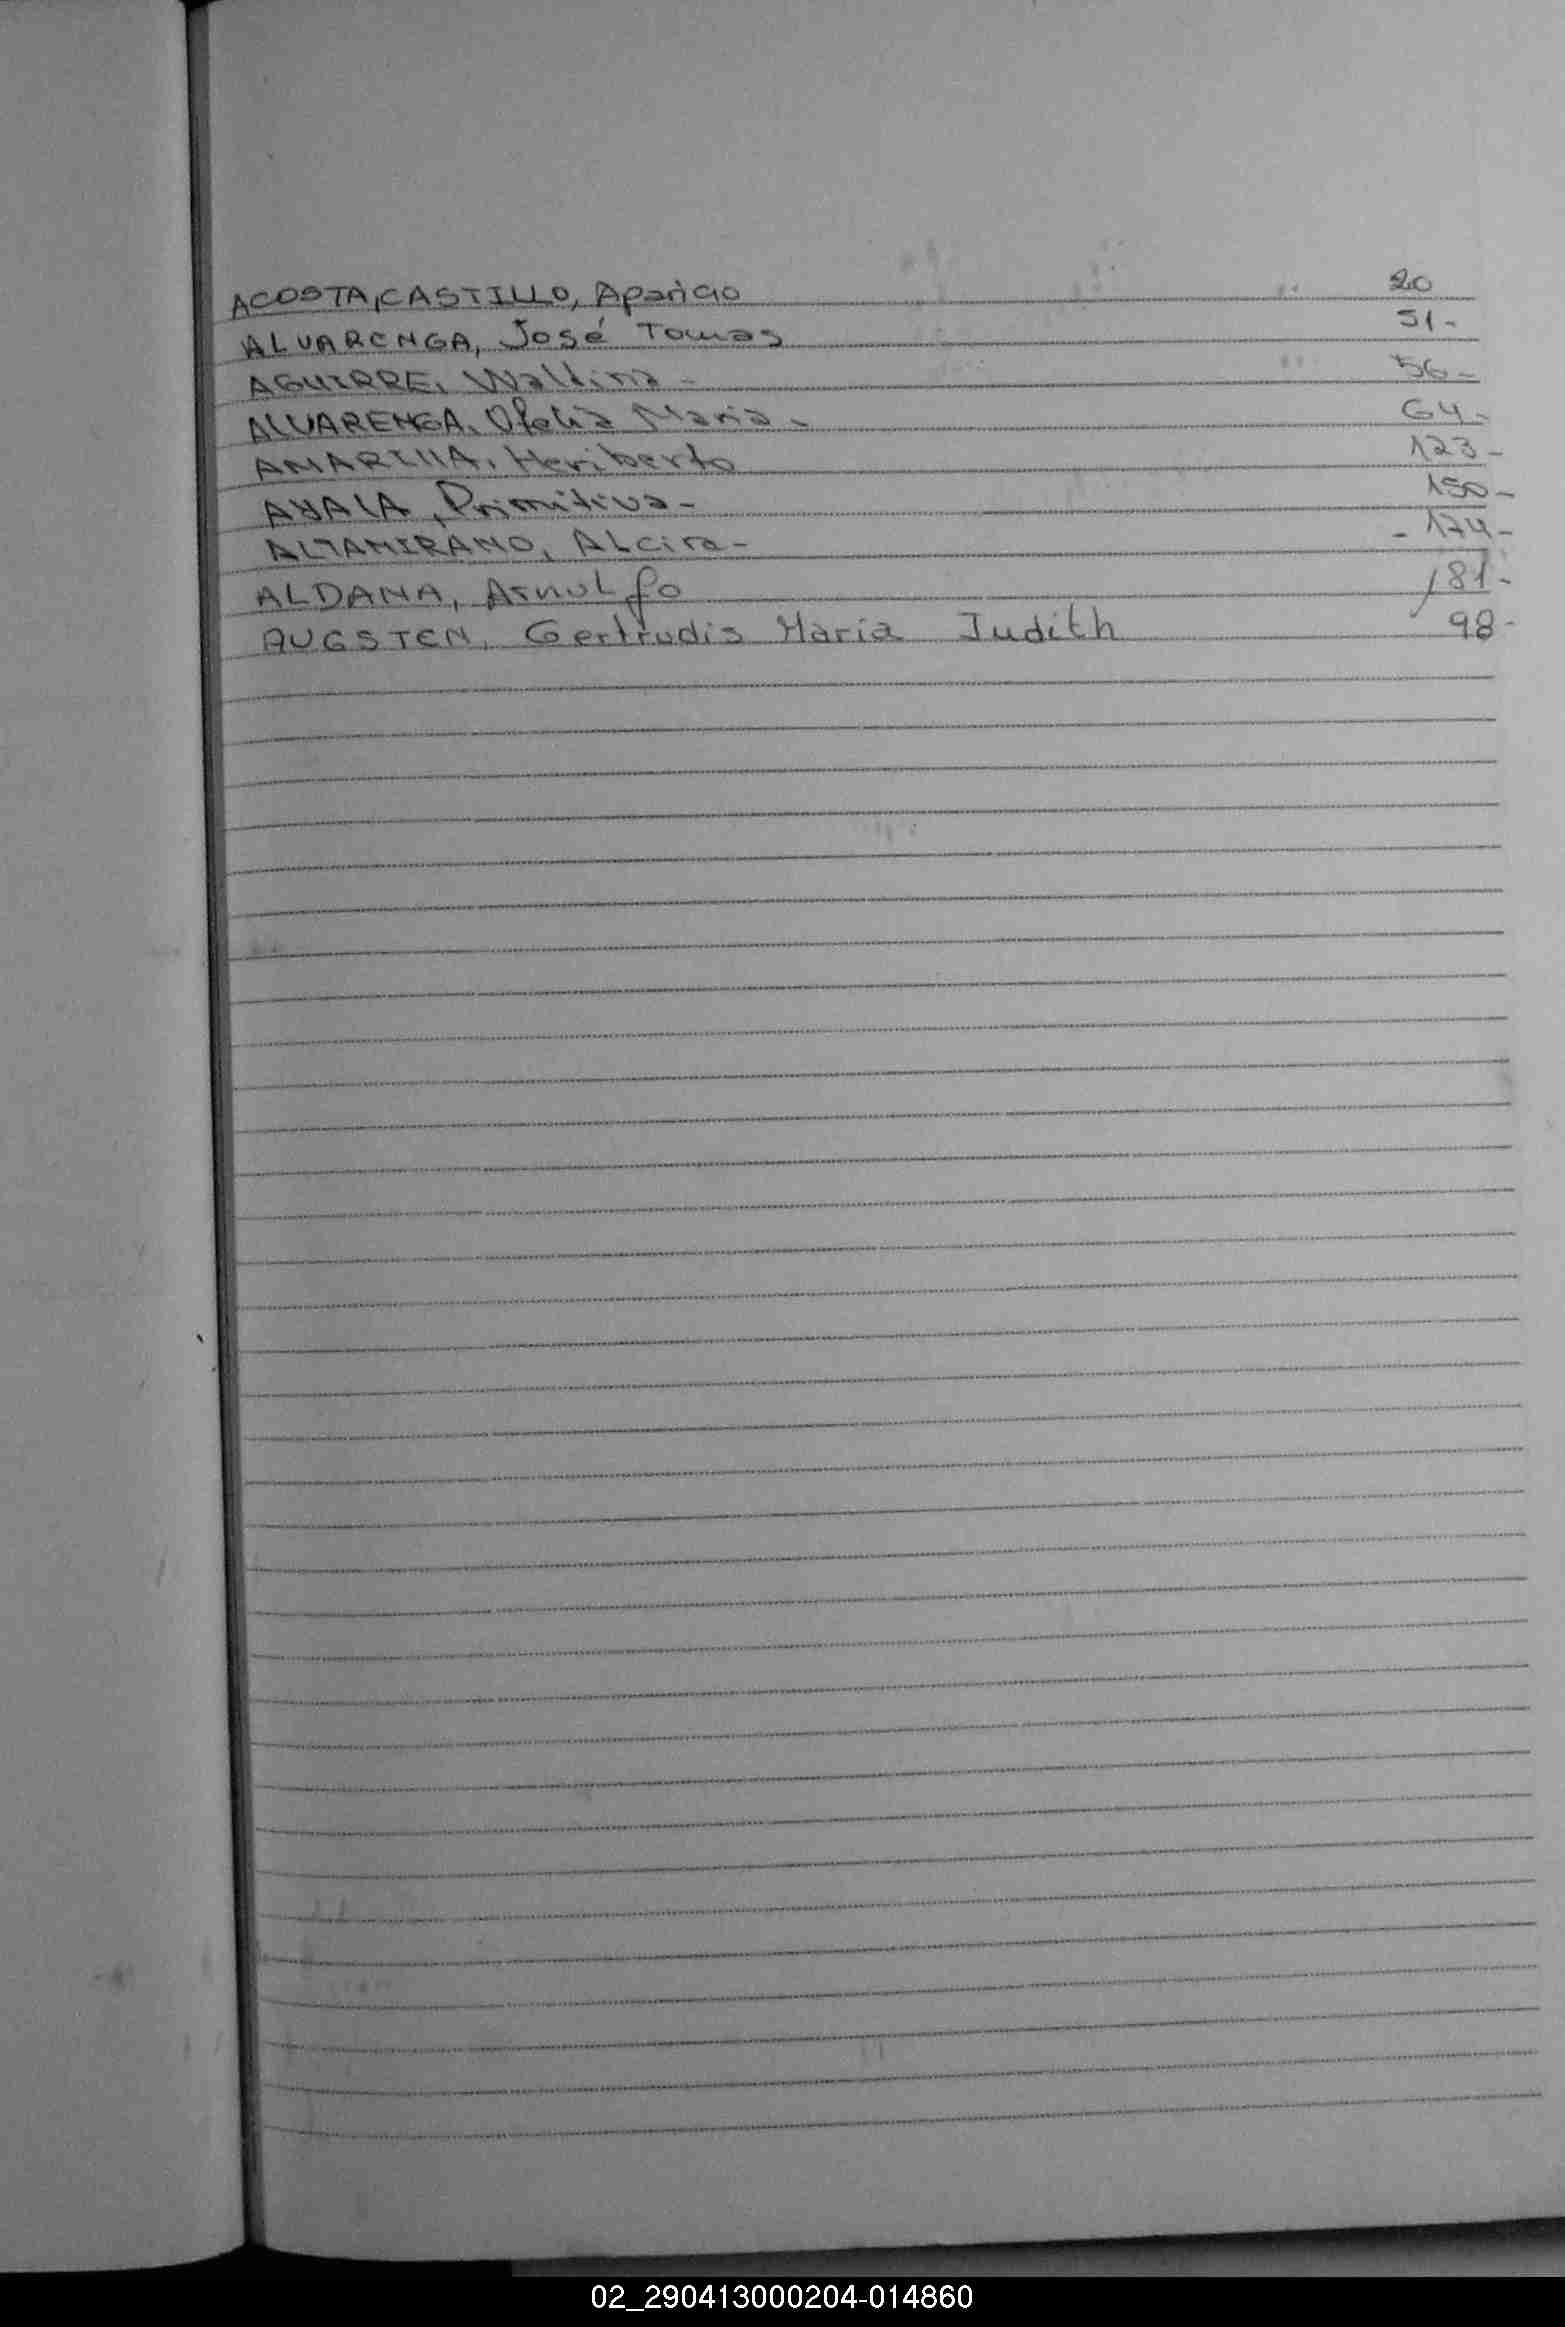 ACOSTA, CASTILLO, Aparicio 20
ALVARENGA, José Tomas 51-
AGUIRRE, Waldina - 56-
ALVARENGA, Ofelia Maria - 64-
AMARILLA, Heriberto 123-
AYALA, Primitiva - 150-
ALTAMIRANO, Alcira - - 174-
ALDANA, Arnulfo 181-
AUGSTEN, Gertrudis María Judith 98-
02_290413000204-014860